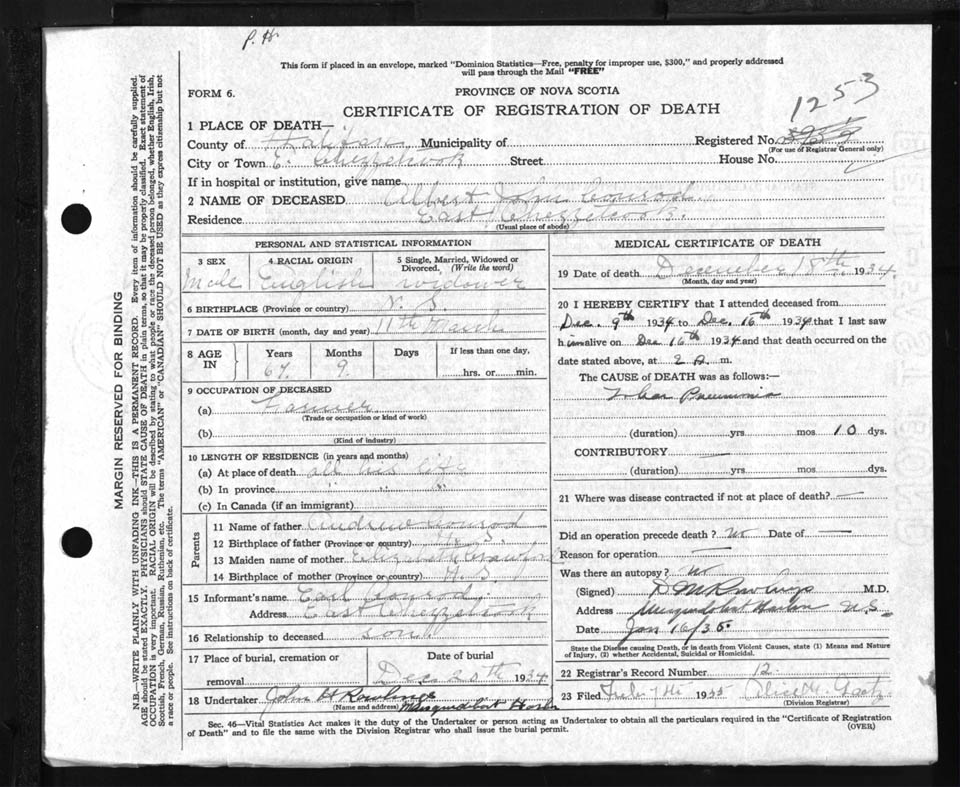 P. H.
This form if placed in an envelope, marked "Dominion Statistics—Free, penalty for improper use, $300," and properly addressed
will pass through the Mail "FREE"
FORM 6.
PROVINCE OF NOVA SCOTIA
CERTIFICATE OF REGISTRATION OF DEATH
1253
1 PLACE OF DEATH—
County of Halifax Municipality of Registered No.
(For use of Registrar General only)
City or Town E. Chezzetcook Street House No.
If in hospital or institution, give name
2 NAME OF DECEASED Albert John Conrod
Residence East Chezzetcook.
(Usual place of abode)
PERSONAL AND STATISTICAL INFORMATION
3 SEX 4 RACIAL ORIGIN 5 Single, Married, Widowed or Divorced, (Write the word)
Male English widower
6 BIRTHPLACE (Province or country) N. S.
7 DATE OF BIRTH (month, day and year) 11th March
8 AGE IN Years Months Days If less than one day,
67 9. hrs. or min.
9 OCCUPATION OF DECEASED
(a) Farmer
(Trade or occupation or kind of work)
(b)
(Kind of industry)
10 LENGTH OF RESIDENCE (in years and months)
(a) At place of death all his life
(b) In province " " "
(c) In Canada (if an immigrant)
Parents
11 Name of father Andrew Conrod
12 Birthplace of father (Province or country) N. S.
13 Maiden name of mother Elizabeth Crawford
14 Birthplace of mother (Province or country) N. S.
15 Informant's name Earl Conrod
Address East Chezzetcook
16 Relationship to deceased son.
17 Place of burial, cremation or removal Date of burial
Dec 20th 1934
18 Undertaker John H Rowlings
(Name and address) Musquodoboit Harbor
MEDICAL CERTIFICATE OF DEATH
19 Date of death December 18th, 1934
(Month, day and year)
20 I HEREBY CERTIFY that I attended deceased from
Dec. 9th 1934 to Dec. 16th 1934 that I last saw
him alive on Dec 16th 1934 and that death occurred on the
date stated above, at 2 A. m.
The CAUSE OF DEATH was as follows:—
Lobar Pneumonia
(duration) yrs mos 10 dys.
CONTRIBUTORY
(duration) yrs. mos. dys.
21 Where was disease contracted if not at place of death? —
Did an operation precede death? no Date of
Reason for operation —
Was there an autopsy? no
(Signed) D M Rowlings M.D.
Address Musquodoboit Harbor N.S.
Date Jan 16/35
State the Disease causing Death, or in death from Violent Causes, state (1) Means and Nature
of Injury, (2) whether Accidental, Suicidal or Homicidal.
22 Registrar's Record Number 12
23 Filed Feb 7th 1935 Alice M. Gaetz
(Division Registrar)
Sec. 46—Vital Statistics Act makes it the duty of the Undertaker or person acting as Undertaker to obtain all the particulars required in the "Certificate of Registration
of Death" and to file the same with the Division Registrar who shall issue the burial permit.
(OVER)
MARGIN RESERVED FOR BINDING
N.B.—WRITE PLAINLY WITH UNFADING INK—THIS IS A PERMANENT RECORD. Every item of information should be carefully supplied.
AGE should be stated EXACTLY. PHYSICIANS should STATE CAUSE OF DEATH in plain terms, so that it may be properly classified. Exact statement of
OCCUPATION is very important. RACIAL ORIGIN will be described by stating to what people or race the deceased person belonged, whether English, Irish,
Scottish, French, German, Russian, Ruthenian, etc. The terms "AMERICAN" or "CANADIAN" SHOULD NOT BE USED as they express citizenship but not
a race or people. See instructions on back of certificate.